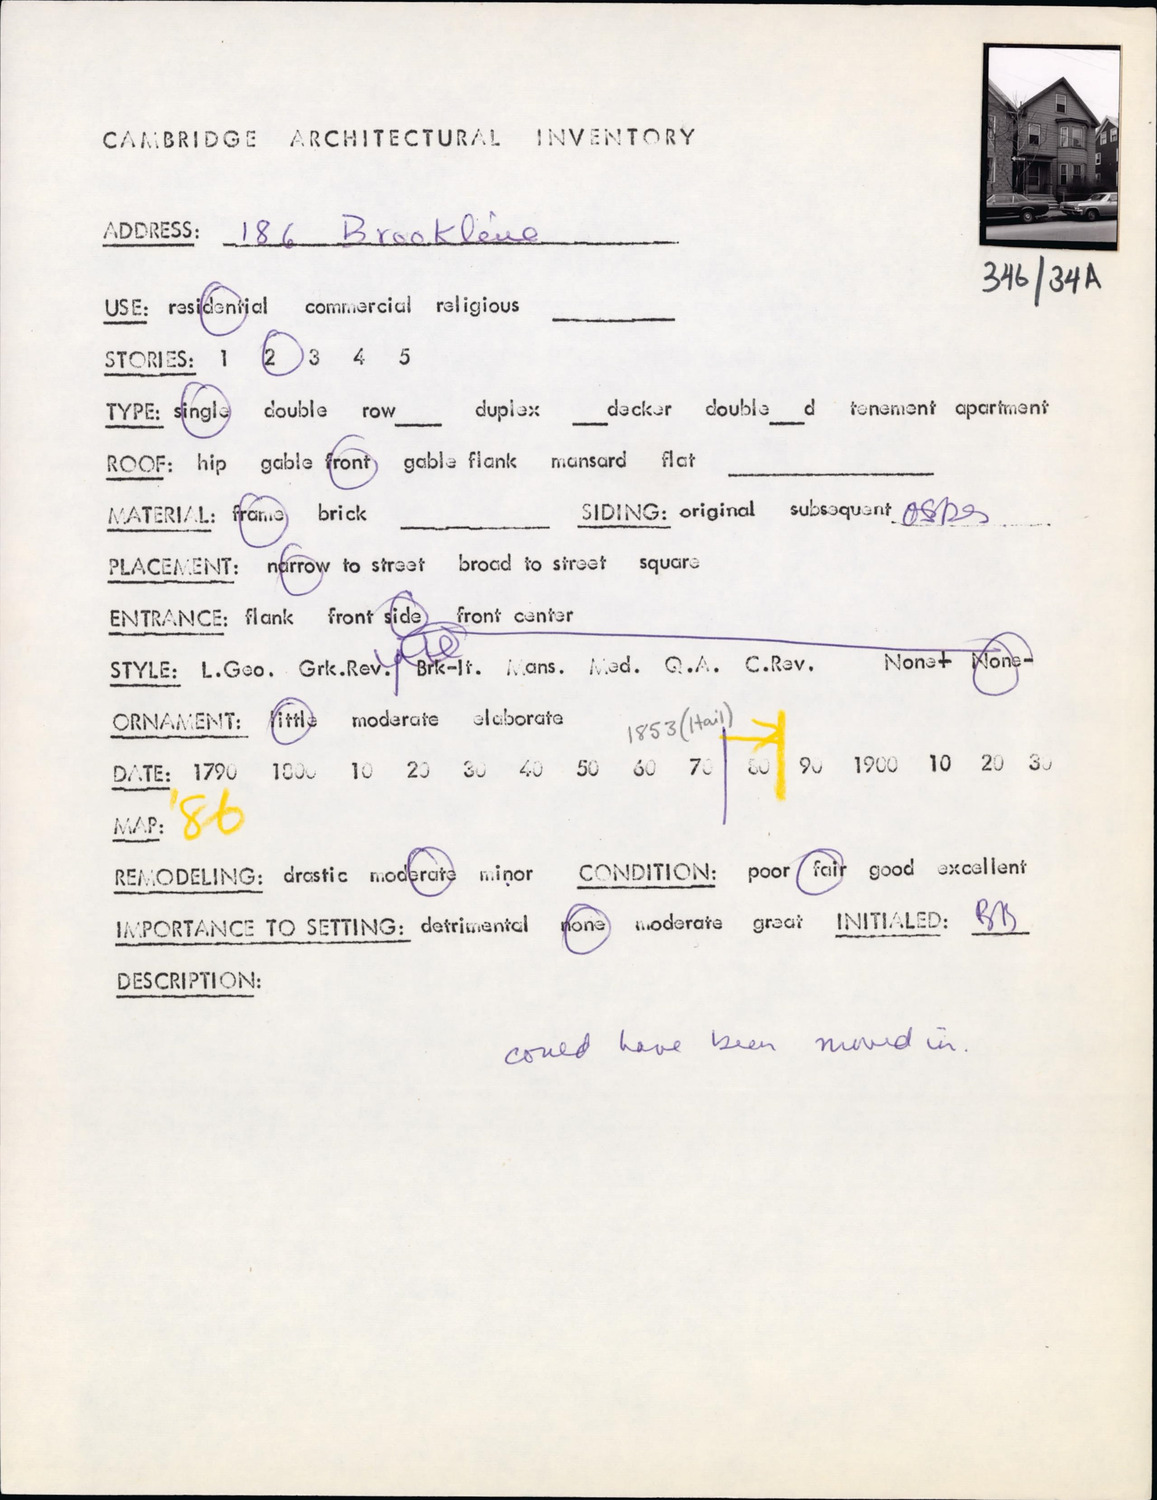 CAMBRIDGE ARCHITECTURAL INVENTORY
ADDRESS: 186 Brookline
346/34A
USE: residential commercial religious
STORIES: 1 2 3 4 5
TYPE: single double row___ duplex ___decker double___d tenement apartment
ROOF: hip gable front gable flank mansard flat
MATERIAL: frame brick SIDING: original subsequent
PLACEMENT: narrow to street broad to street square
ENTRANCE: flank front side front center
STYLE: L.Geo. Grk.Rev. Brk-It. Mans. Med. Q.A. C.Rev. None+ None-
ORNAMENT: little moderate elaborate
1853 (Hail)
DATE: 1790 1800 10 20 30 40 50 60 70 80 90 1900 10 20 30
MAP: '86
REMODELING: drastic moderate minor CONDITION: poor fair good excellent
IMPORTANCE TO SETTING: detrimental none moderate great INITIALED: BB
DESCRIPTION:
could have been moved in.